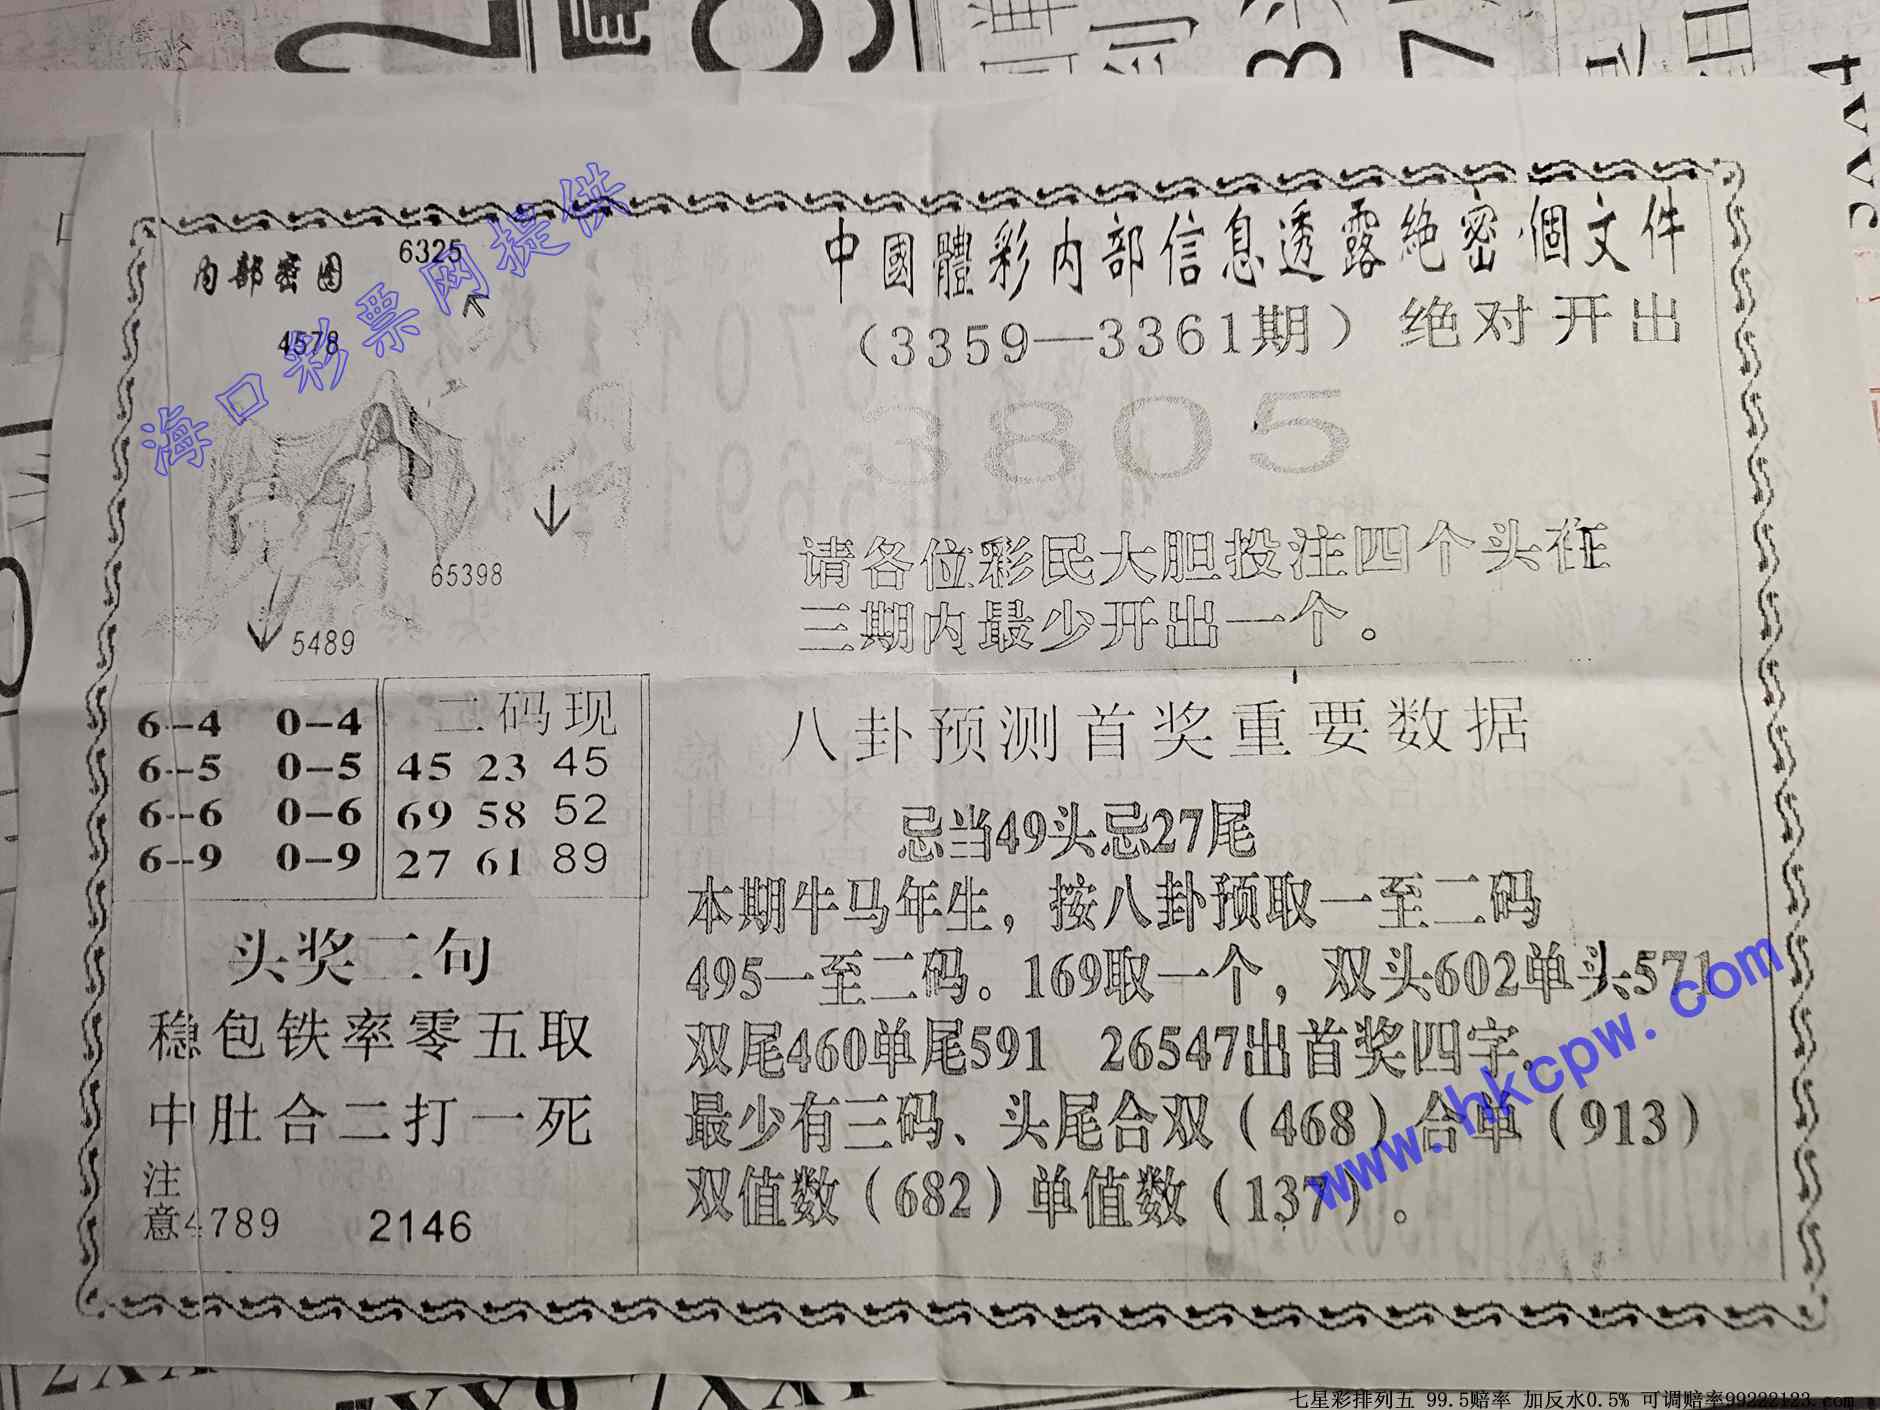 内部密图
6325
4578
65398
5489
海口彩票网提供
中國體彩内部信息透露絶密個文件
（3359—3361期）绝对开出
3805
请各位彩民大胆投注四个头在
三期内最少开出一个。
6--4 0--4
6--5 0--5
6--6 0--6
6--9 0--9
二码现
45 23 45
69 58 52
27 61 89
头奖二句
稳包铁率零五取
中肚合二打一死
注
意4789 2146
八卦预测首奖重要数据
忌当49头忌27尾
本期牛马年生，按八卦预取一至二码
495一至二码。169取一个，双头602单头571
双尾460单尾591 26547出首奖四字。
最少有三码、头尾合双（468）合单（913）
双值数（682）单值数（137）。
www.hkcpw.com
七星彩排列五 99.5赔率 加反水0.5% 可调赔率99222123.com